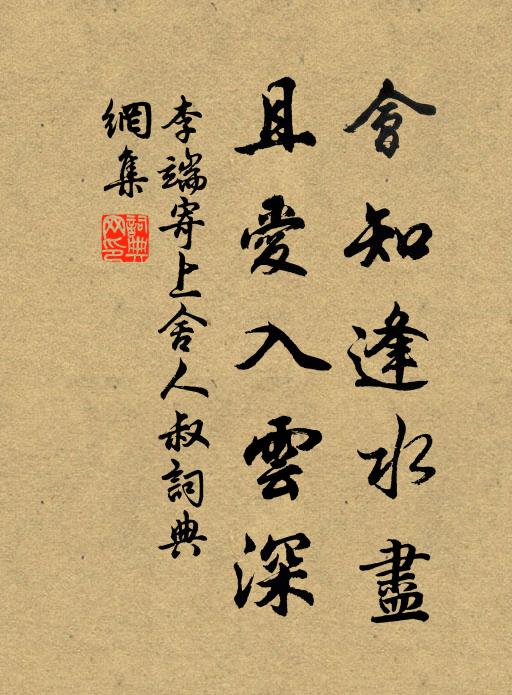 會知逢水盡
且愛入雲深
李端寄上舍人叔詞典
網集
詞典
网印